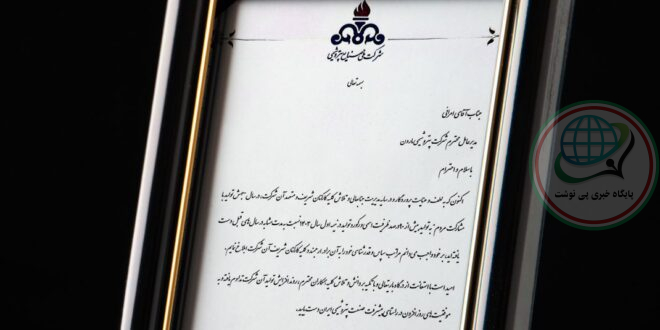 شرکت ملی صنایع پتروشیمی
بسمه تعالی
جناب آقای امرائی
مدیرعامل محترم شرکت پتروشیمی مارون
با سلام و احترام
اکنون که به لطف و عنایت پروردگار و در سایه مدیریت جنابعالی و تلاش کلیه کارکنان شریف و متعهد آن شرکت، در سال جهش تولید با
مشارکت مردم به تولید بیش از ۹۰ درصد ظرفیت اسمی و رکورد تولید در نیمه اول سال ۱۴۰۳ نسبت به مدت مشابه در سال های قبل دست
یافته اید، بر خود واجب می دانم مراتب سپاس و قدرشناسی خود را به آن برادر ارجمند و کلیه کارکنان شریف آن شرکت ابلاغ نمایم.
امید است با استعانت از درگاه باریتعالی و با تکیه بر دانش و تلاش کلیه همکاران محترم، روند افزایش تولید آن شرکت تداوم یافته و به
موفقیت های روزافزون در راستای پیشرفت صنعت پتروشیمی ایران دست یابید.
پایگاه خبری پی نوشت